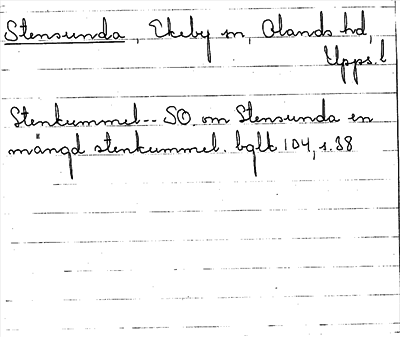 Stensunda, Ekeby sn, Olands hd,
Upps. l
Stenkummel -- SO. om Stensunda en
mängd stenkummel. bglt 104, s. 38